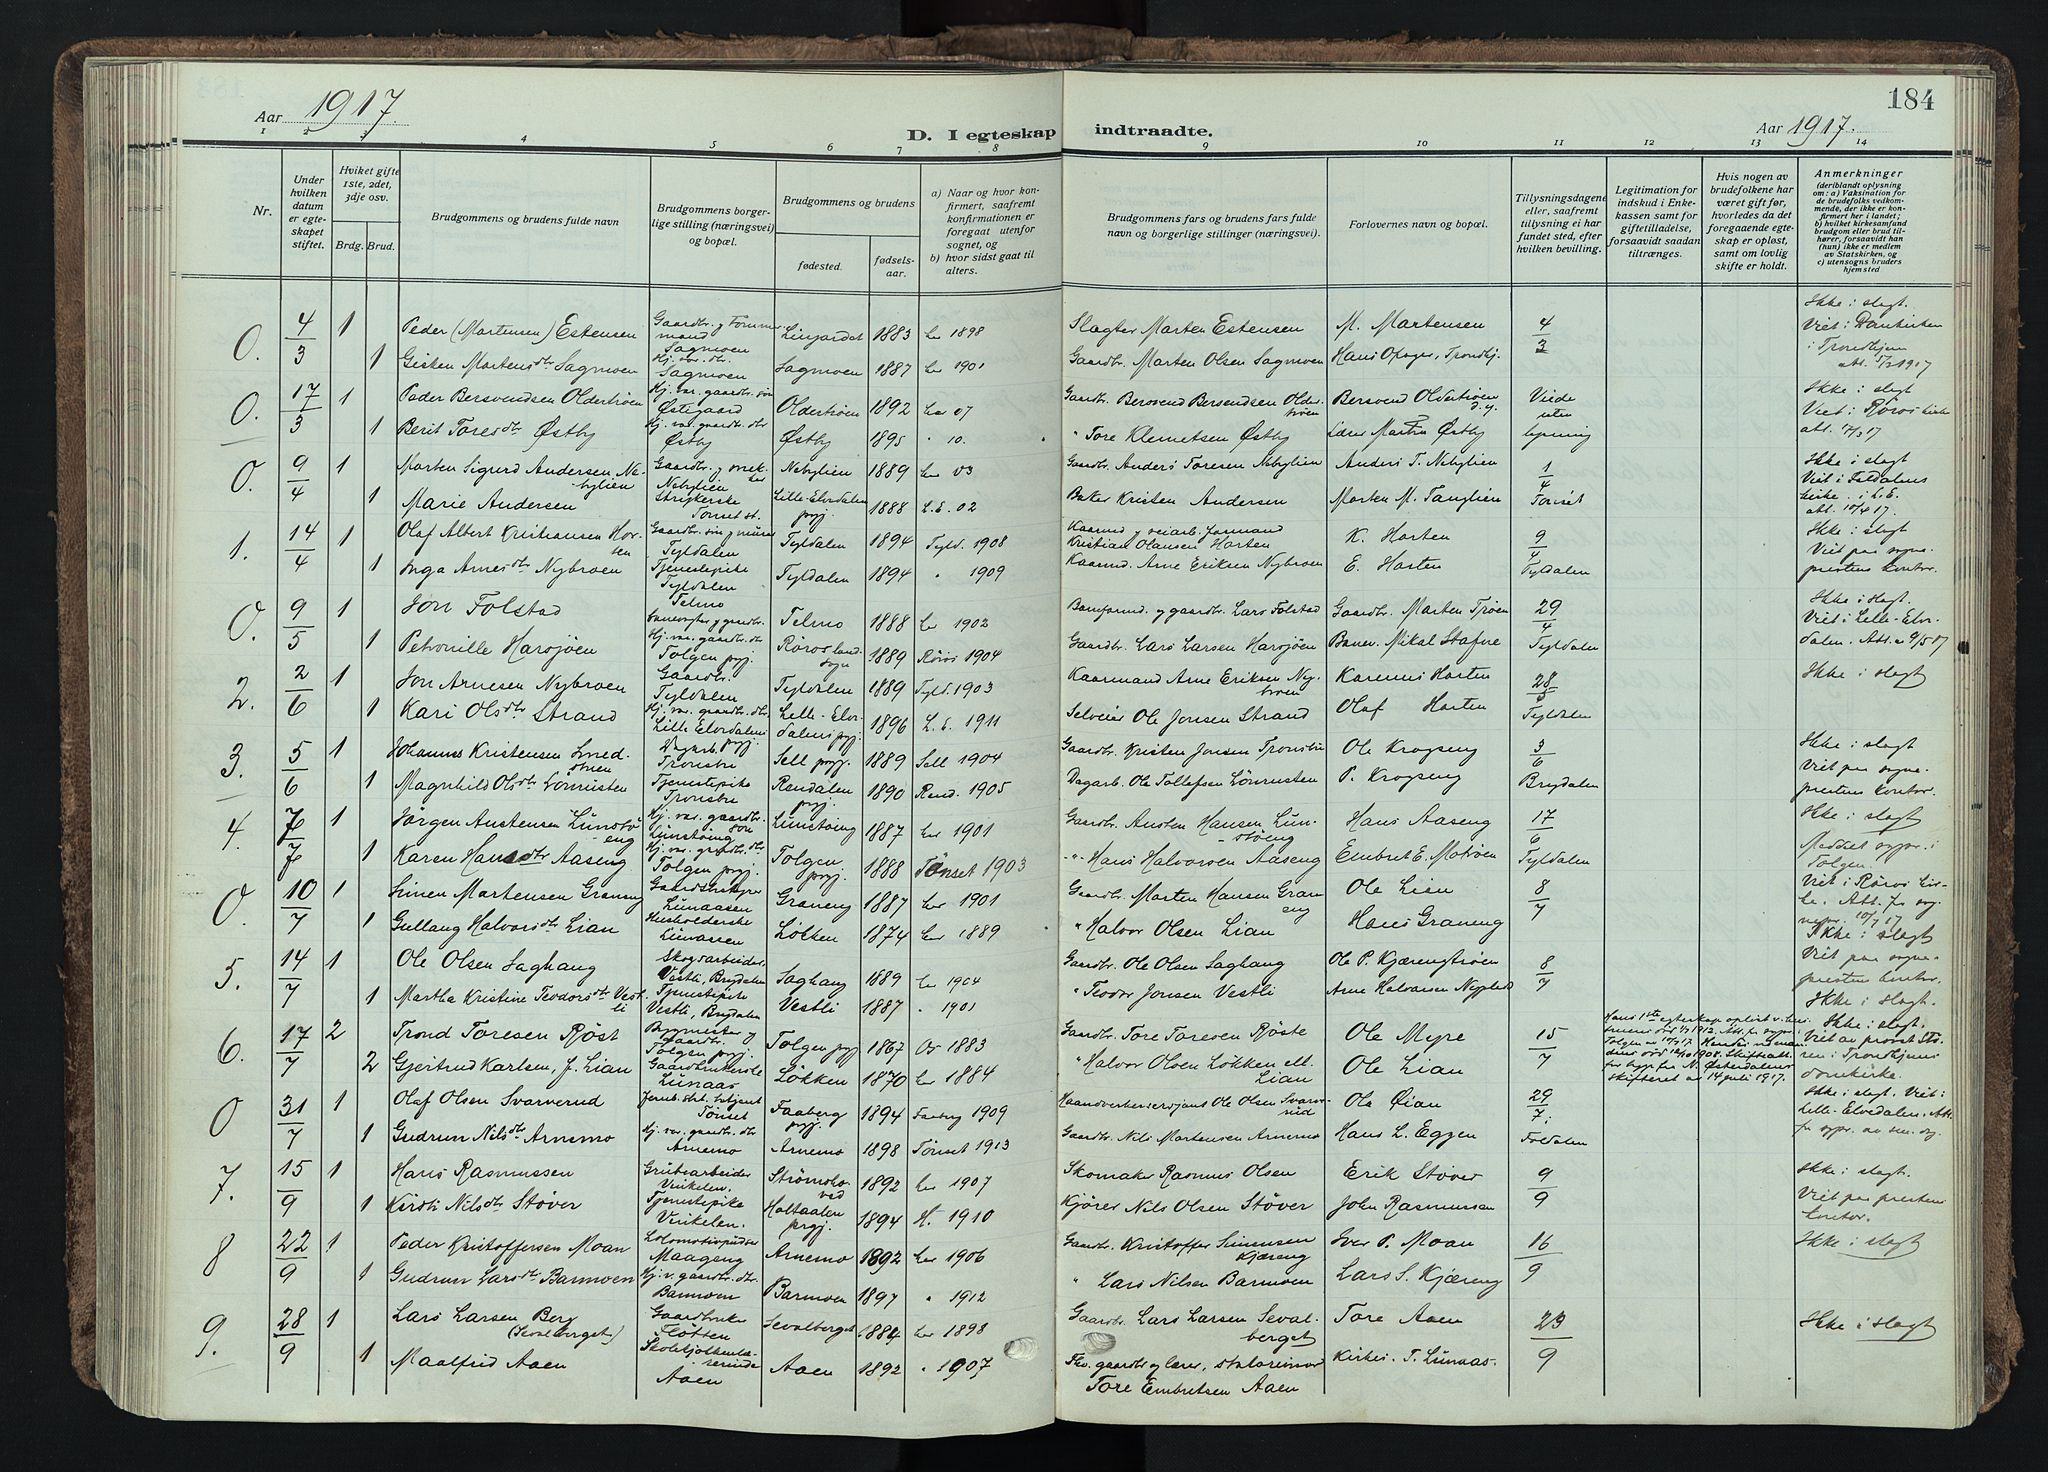 184
Aar 1917.
D. I egteskap indtraadte.
Aar 1917.
1 2 3 4 5 6 7 8 9 10 11 12 13 14
Nr.
Under hvilken datum er egteskapet stiftet.
Hviket gifte 1ste, 2det, 3dje osv.
Brdg. Brud.
Brudgommens og brudens fulde navn
Brudgommens borgerlige stilling (næringsvei) og bopæl.
Brudgommens og brudens
fødested.
fødselsaar.
a) Naar og hvor konfirmert, saafremt konfirmationen er foregaat utenfor sognet, og
b) hvor sidst gaat til alters.
Brudgommens fars og brudens fars fulde navn og borgerlige stillinger (næringsvei).
Forlovernes navn og bopæl.
Tillysningsdagene eller, saafremt tillysning ei har fundet sted, efter hvilken bevilling.
Legitimation for indskud i Enkekassen samt for giftetilladelse, forsaavidt saadan tiltrænges.
Hvis nogen av brudefolkene har været gift før, hvorledes da det foregaaende egteskap er opløst, samt om lovlig skifte er holdt.
Anmerkninger
(deriblandt oplysning om: a) Vaksination for de brudefolks vedkommende, der ikke er konfirmert her i landet; b) hvilket kirkesamfund brudgom eller brud tilhører, forsaavidt han (hun) ikke er medlem av Statskirken, og c) utensogns bruders hjemsted
O. 4/3 1 Peder (Martensen) Estensen 1883 her 1898 Slagter Marten Estensen M. Martensen 4/3 Ikke i slegt.
1 Gisken Martensdtr Sagmoen Sagmoen Sagmoen 1887 her 1901 Gaardbr. Marten Olsen Sagmoen Hans Opøger, Trondhj. Viet i Domkirken i Trondhjem att. 5/3 1917
O. 17/3 1 Peder Bersvendsen Oldertrøen Østigaard Oldertrøen 1892 her 07 Gaardbr. Bersvend Bersvendsen Oldertrøen Bersvend Oldertrøen d.y. Viede uten lysning Ikke i slegt
1 Berit Toresdtr Østby Østby Østby 1895 " 10. " Tore Klemetsen Østby Viet i Røros kirke att. 17/3 17
O. 9/4 1 Morten Sigurd Andersen Nebylien Nebylien 1889 her 03 Gaardbr. Anders Toresen Nebylien Anders T. Nebylien 1/4 Tønset Ikke i slegt
1 Marie Andersen Strykerske Tønset st. Lille-Elvdalen prgj. 1888 L.E. 02 Baker Kristen Andersen Morten M. Tanglien att. 10/4 17.
1. 14/4 1 Olaf Albert Kristiansen Horten Tyldalen Tyldalen 1894 Tyld. 1908 Kristian Olausen Horten K. Horten 9/4 Tyldalen Ikke i slegt
1 Inga Arnesdtr Nybroen Tjenestepike Tyldalen Tyldalen 1894 " 1909 Kaarmd. Arne Eriksen Nybroen E. Horten Viet paa sogneprestens kontor.
O. 9/5 1 Jon Folstad Telmo 1888 her 1902 Lars Folstad Gaardbr. Morten Trøen 29/4 Tyldalen Ikke i slegt.
1 Petronille Harsjøen Hj. var. gaardbr. dtr Tolgen prgj. Røros landsogn 1889 Røros 1904 Gaardbr. Lars Larsen Harsjøen Mikal Stafne Viet i Lille-Elvdalen. Att. 9/5 17
2. 2/6 1 Jon Arnesen Nybroen Gaardbr. Tyldalen Tyldalen 1889 Tyld. 1903 Kaarmand Arne Eriksen Nybroen Karenus Horten 28/5 Tyldalen Ikke i slegt
1 Kari Olsdtr Strand Hj. var. gaardbr. dtr Lille Elvdalens prgj. Lille-Elvdalens prgj. 1896 L.E. 1911 Selveier Ole Jonsen Strand Olaf Horten
3. 5/6 1 Johannes Kristensen Dagarb. Tronsbu Sell prgj. 1889 Sell 1904 Gaardbr. Kristen Jonsen Tronsbu Ole Krogseng 3/6 Brydalen Ikke i slegt
1 Magnhild Olsdtr Lønrusten Tjenestepike Tronsbu Rendalen prgj. 1890 Rend. 1905 Dagarb. Ole Tollefsen Lønrusten P. Krogseng Viet paa sogneprestens kontor.
4. 7/7 1 Jørgen Austensen Lunstøeng Hj. var. gaardbr. søn Lunstøing Lunstøing 1887 her 1901 Gaardbr. Austen Hansen Lunstøeng Hans Aaseng 17/6 Tyldalen Ikke i slegt
1 Karen Hansdtr Aaseng Hj. var. gaardbr. dtr Tolgen prgj. Tolgen prgj. 1888 Tønset 1903 " Hans Halvorsen Aaseng Embret E. Motrøen Tolgen.
O. 10/7 1 Simen Martensen Graneng Lunaasen Graneng 1887 her 1901 Gaardbr. Morten Hansen Graneng Ole Lian 8/7 Viet i Røros kirke.
1 Gullaug Halvorsdtr Lian Husholderske Lunaasen Løkken 1874 her 1889 " Halvor Olsen Lian Hans Graneng 10/7 17 Ikke i slegt
5. 14/7 1 Ole Olsen Saghaug Skogsarbeider, Vestli, Brydalen Saghaug 1889 her 1904 Gaardbr. Ole Olsen Saghaug Ole P. Kjærengtrøen 8/7 Viet paa sogneprestens kontor.
1 Martha Kristine Teodorsdtr Vestli Tjenestepike Vestli, Brydalen Vestli 1887 " 1901 " Teodor Jonsen Vestli Arne Halvorsen Ikke i slegt.
6. 17/7 2 Trond Toresen Røst Bygmester og gaardbr. Tolgen prgj. Tolgen prgj 1867 Os 1883 Gaardbr. Tore Toresen Røste Ole Myre 15/7 Hans 1ste egteskap opløst v. hustruens død 1/7 1912. Ikke i slegt.
2 Gjertrud Karlsen, f. Lian Gaardbrukerske Lunaas Løkken 1870 her 1884 " Halvor Olsen Løkken ell. Lian Ole Lian skifteret av 14 juli 1917. Viet av provst Støren i Trondhjems domkirke.
O 31/7 1 Olaf Olsen Svarverud Jernb.st. betjent Tønset Faaberg prgj. 1894 Faaberg 1909 Ole Olsen Svarverud Ole Øian 29/7. Foldalen Ikke i slegt. Viet i Lille-Elvedalen. Att.
1 Gudrun Nilsdtr Arnemo Hj. var. gaardbr. dtr Arnemo Arnemo 1898 Tønset 1913 Gaardbr. Nils Mortensen Arnemo Hans L. Eggen
7. 15/9 1 Hans Rasmussen Grubearbeider Vinkelen, Strømshoved 1892 her 1907 Skomaker Rasmus Olsen Erik Støver 9/9 Ikke i slegt.
1 Kirsti Nilsdtr Støver Tjenestepike Vinkelen. Holtaalen prgj. 1894 H. 1910 Kjører Nils Olsen Støver John Rasmussen Viet paa prestens kontor.
8 22/9 1 Peder Kristoffersen Moan Lokomotivpudser Maageng Arnemo 1892 her 1906 Gaardbr. Kristoffer Simensen Kjæreng Iver P. Moan 16/9 Ikke i slegt
1 Gudrun Larsdtr Barmoen Hj. v. gaardbr. dtr. Barmoen Barmoen 1897 " 1912 " Lars Nilsen Barmoen Lars S. Kjæreng
9. 28/9 1 Lars Larsen Berg (Sevalberget) Gaardbruker Fløtten Sevalberget 1884 her 1898 Gaardbr. Lars Larsen Sevalberget Tore Aaen 23/9 Ikke i slegt
1 Maalfrid Aaen Aaen Aaen 1892 " 1907 Fhv. gaardbr. og lærer, Tore Embretsen Aaen T. Lunaas